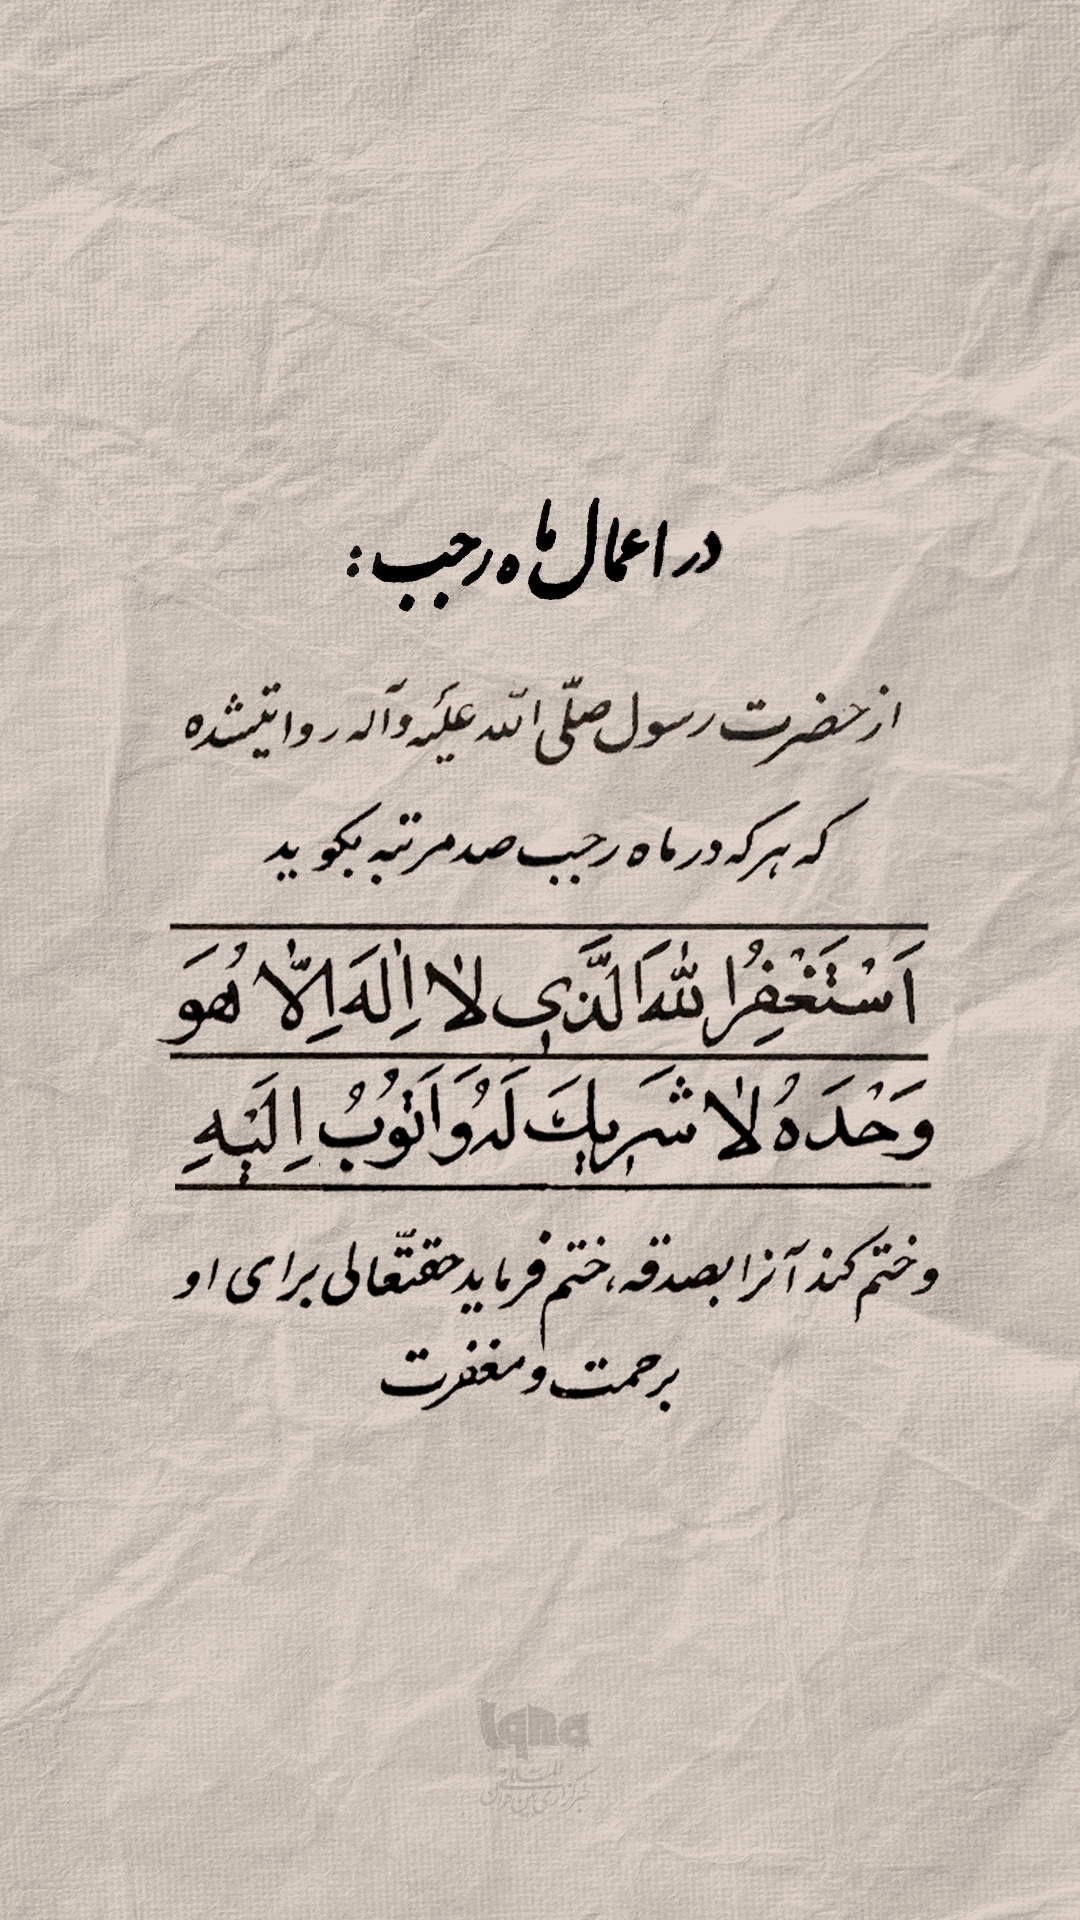 در اعمال ماه رجب :
از حضرت رسول صلّی الله علَیه وآله روایتشده
که هرکه در ماه رجب صد مرتبه بگوید
اَسْتَغْفِرُاللهَ الَّذي لاٰ اِلٰهَ اِلّاٰ هُوَ
وَحْدَهُ لاٰ شَرِيكَ لَهُ وَاَتُوبُ اِلَيْهِ
وختم کند آنرا بصدقه، ختم فرماید حقتّعالی برای او
برحمت و مغفرت
iqna
خبرگزاری بین المللی قرآن